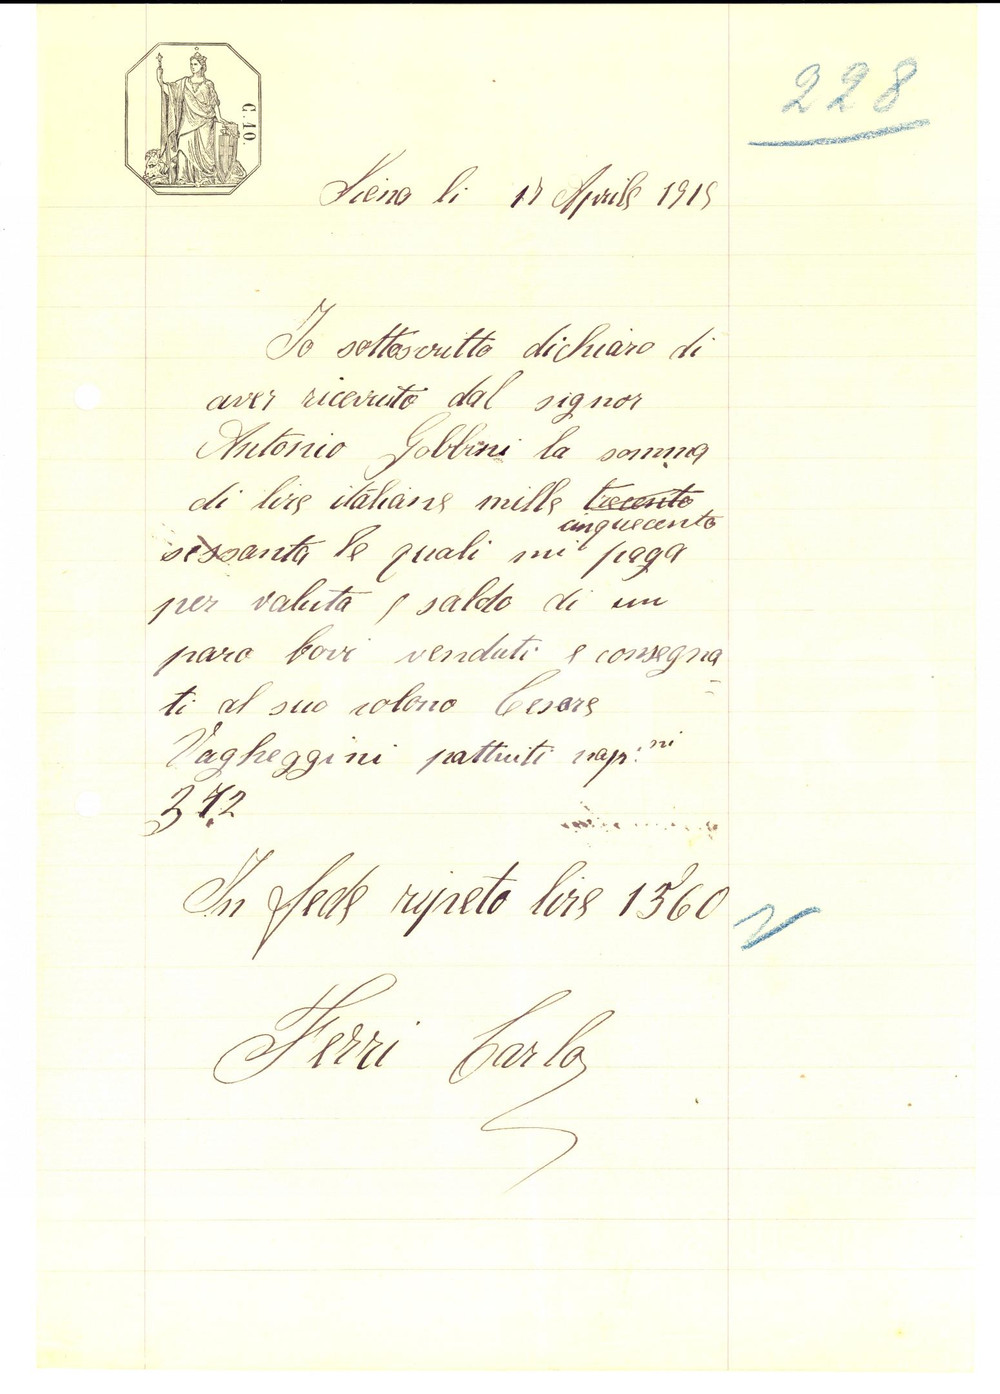 C. 10.
228
Siena li 17 Aprile 1915
Io sottoscritto dichiaro di
aver ricevuto dal signor
Antonio Gobbini la somma
di lire italiane mille trecento
cinquecento
sessanta le quali mi paga
per valuta e saldo di un
paro bovi venduti e consegna
ti al suo colono Cesare
Vagheggini pattuiti nap:ni
372
In fede ripeto lire 1560
Ferri Carlo